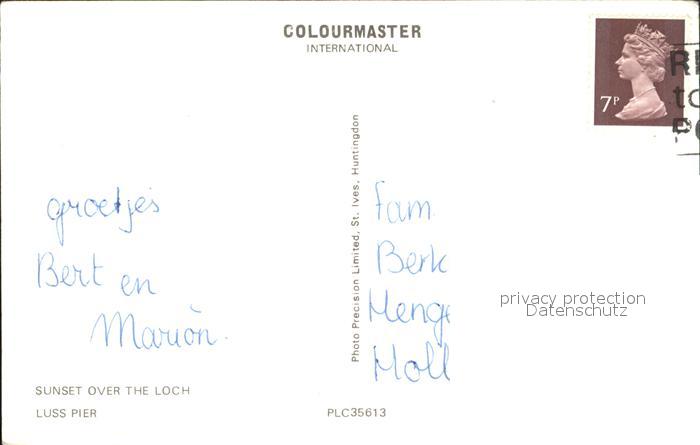 COLOURMASTER
INTERNATIONAL
7P
groetjes
Bert en
Marion.
SUNSET OVER THE LOCH
LUSS PIER
Photo Precision Limited, St. Ives, Huntingdon
PLC35613
fam
Berk
Heng
Moll
privacy protection
Datenschutz